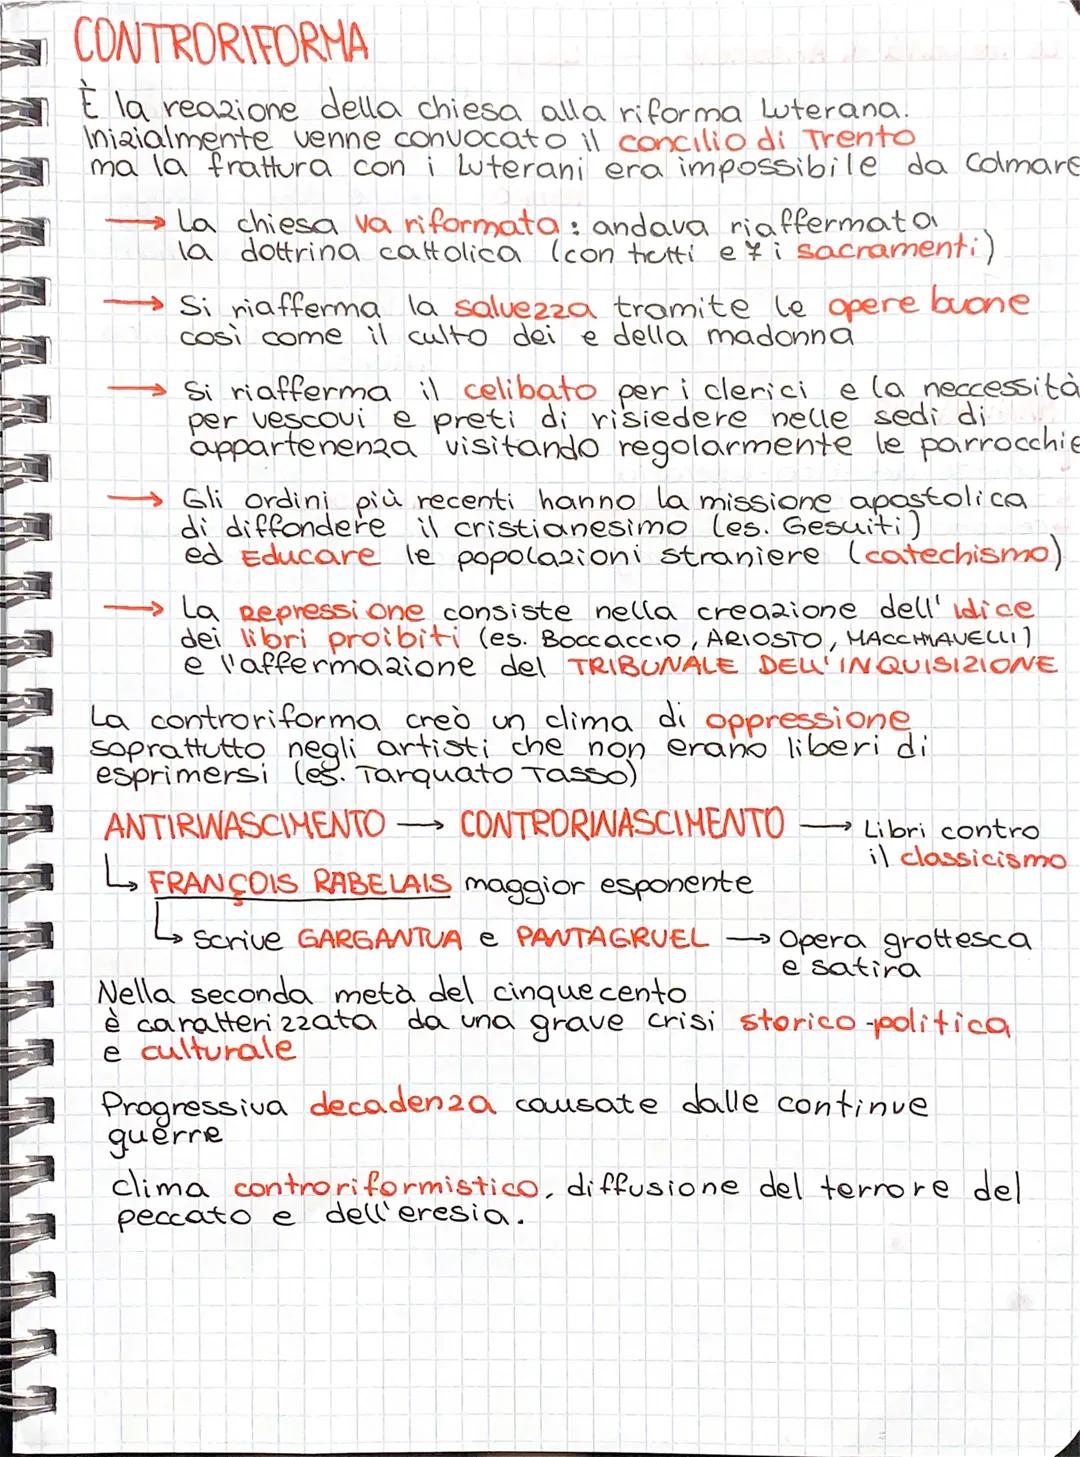 CONTRORIFORMA
È la reazione della chiesa alla riforma Luterana.
Inizialmente venne convocato il concilio di Trento
ma la frattura con i Luterani era impossibile da colmare
→ La chiesa va riformata: andava riaffermata
la dottrina cattolica (con tutti e 7 i sacramenti)
→ Si riafferma la salvezza tramite le opere buone
così come il culto dei e della madonna
→ Si riafferma il celibato per i clerici e la neccessità
per vescovi e preti di risiedere nelle sedi di
appartenenza visitando regolarmente le parrocchie
→ Gli ordini più recenti hanno la missione apostolica
di diffondere il cristianesimo (es. Gesuiti)
ed Educare le popolazioni straniere (catechismo)
→ La Repressione consiste nella creazione dell'idice
dei libri proibiti (es. BOCCACCIO, ARIOSTO, MACCHIAVELLI)
e l'affermazione del TRIBUNALE DELL'INQUISIZIONE
La controriforma creò un clima di oppressione
soprattutto negli artisti che non erano liberi di
esprimersi (es. Tarquato Tasso)
ANTIRINASCIMENTO → CONTRORINASCIMENTO → Libri contro
il classicismo
↳ FRANÇOIS RABELAIS maggior esponente
↳ Scrive GARGANTUA e PANTAGRUEL → Opera grottesca
e satira
Nella seconda metà del cinquecento
è caratterizzata da una grave crisi storico-politica
e culturale
Progressiva decadenza causate dalle continue
guerre
clima controriformistico, diffusione del terrore del
peccato e dell'eresia.